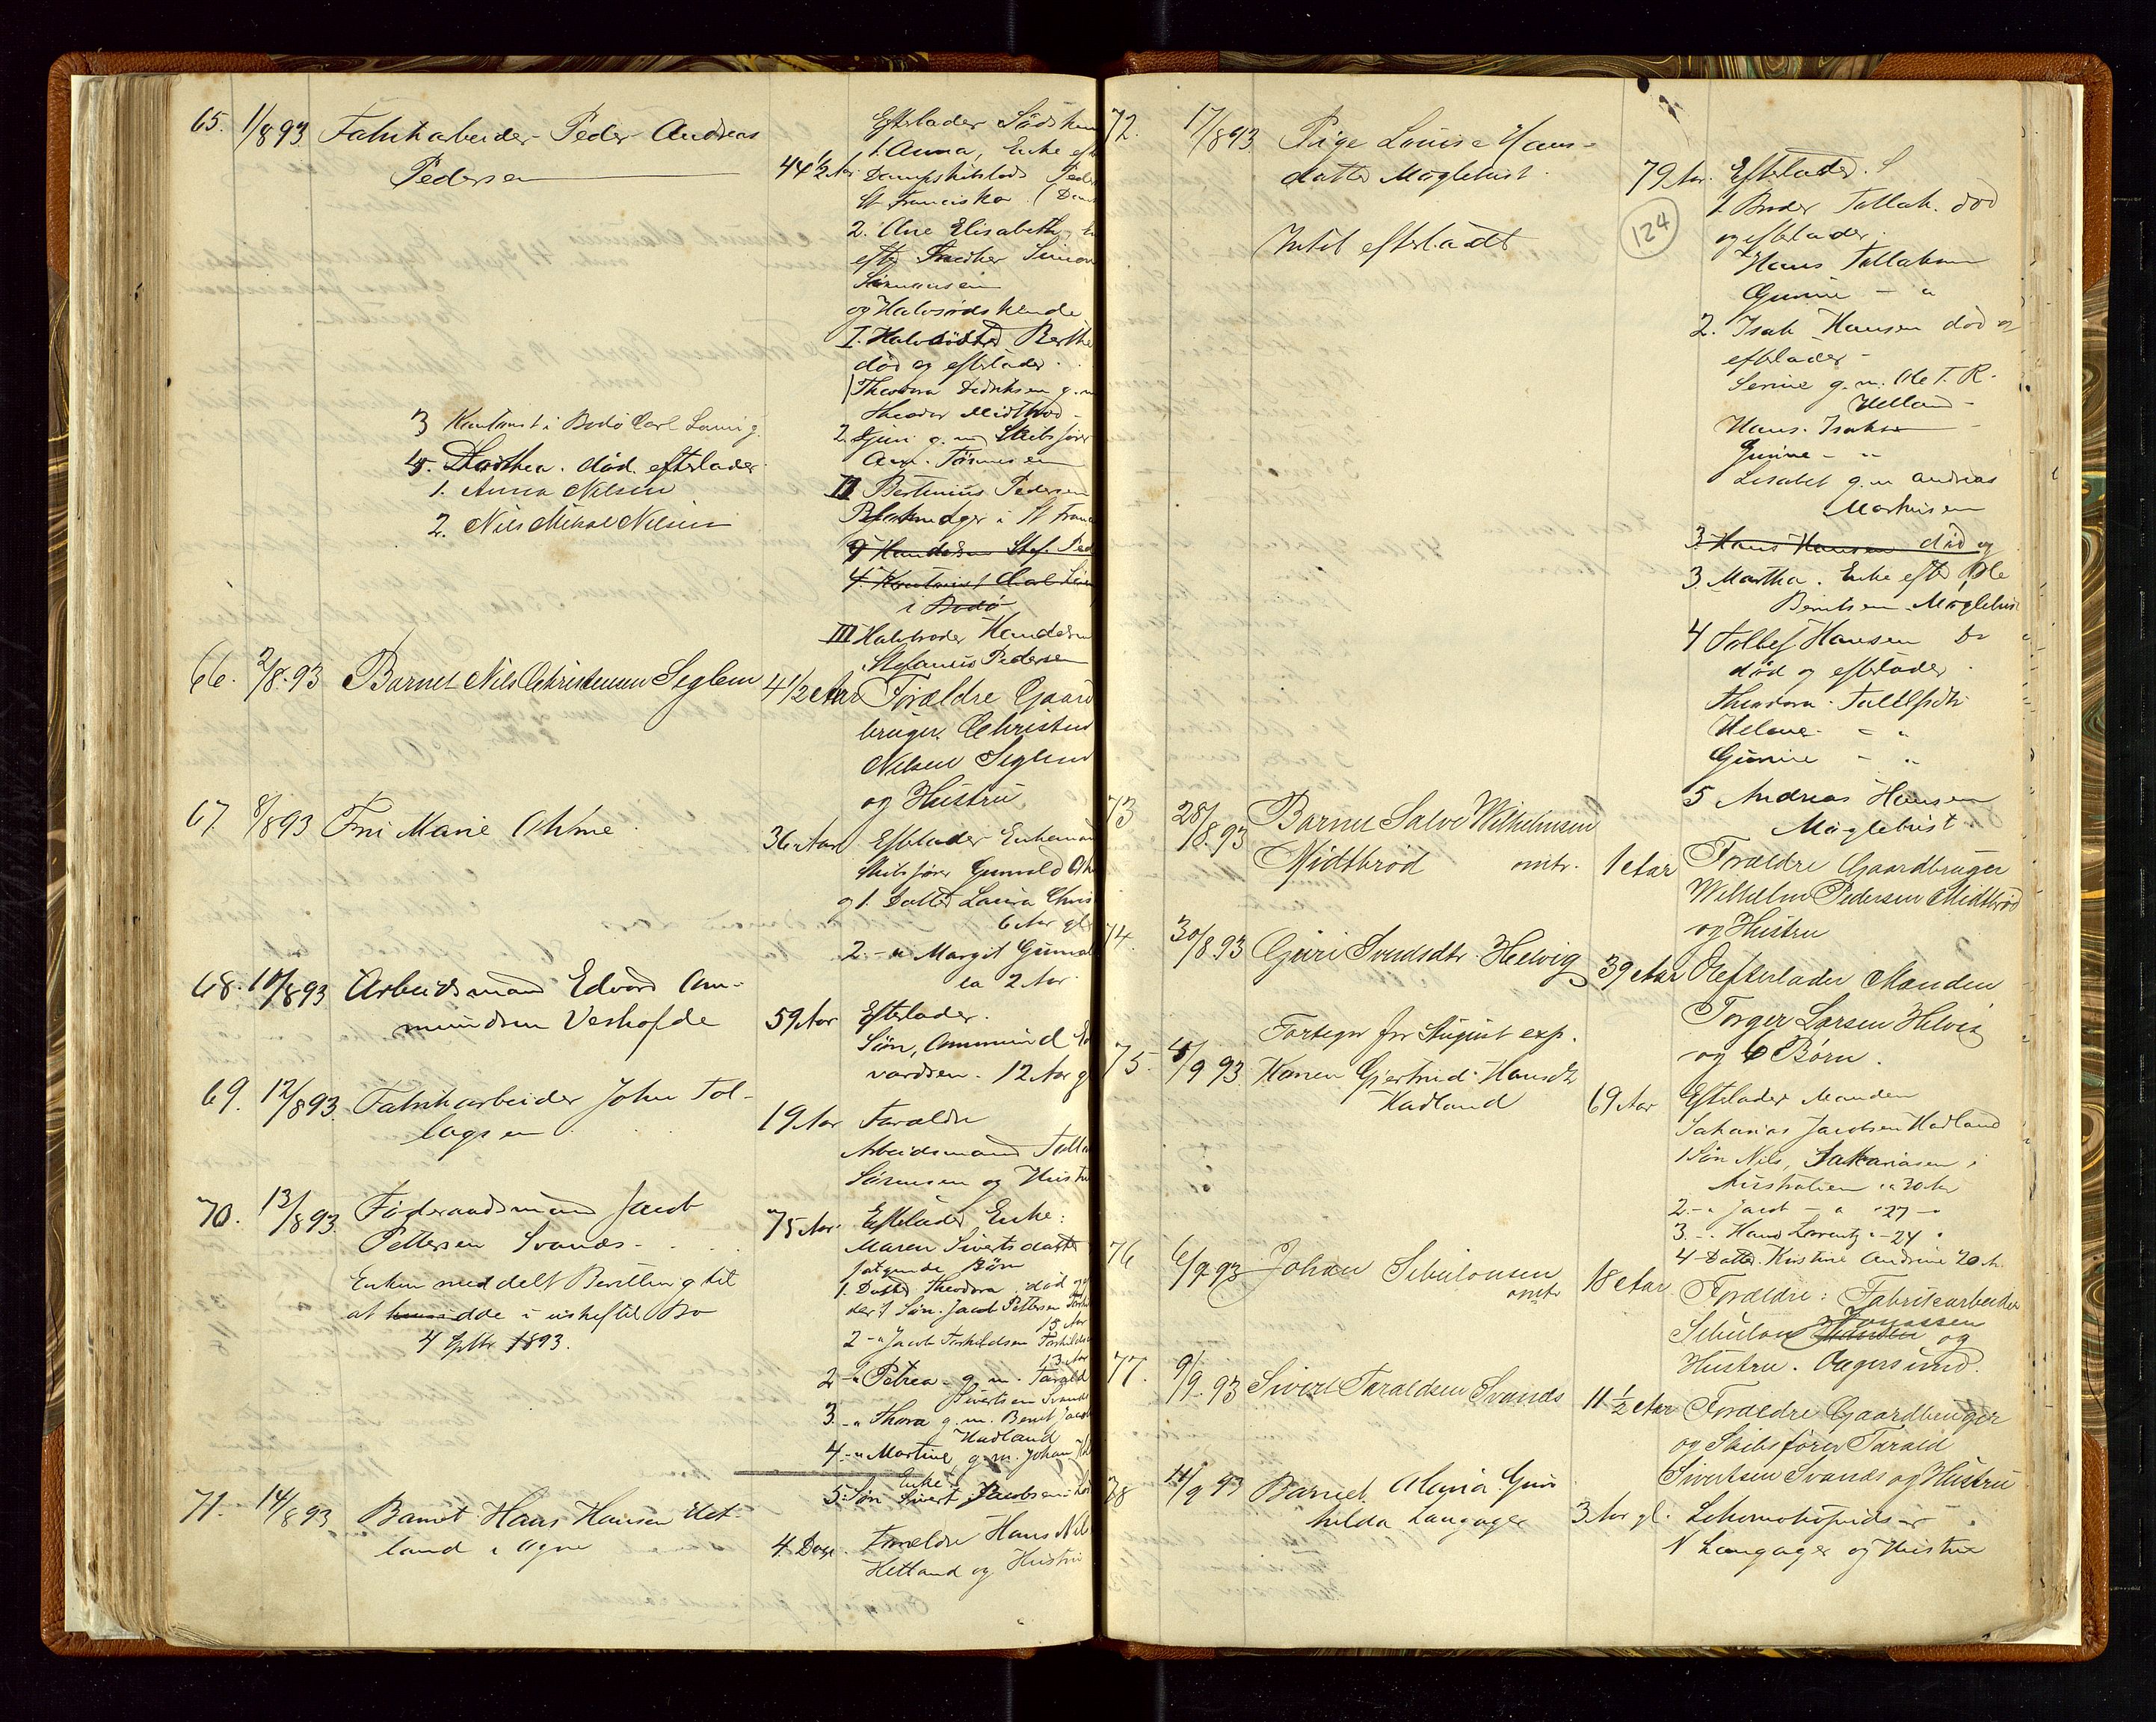 65. 1/8 93 Fabrikarbeider Peder Andreas
Pedersen
44 1/2 Aar
Efterlader Södsken
1. Anna, Enke eft
Dampskibslods Peder
St Francisko. (
2. Ane Elisabeth,
efter Snedker Simon
og Halvsödskende
I. Halvsöster Berthe
död og efterlader.
Theodora Didriksen g. m
Theodor Midtbröd
2. Guri g. m. Skibsförer
Am. Tönnesen
II Bertinius Pedersen
i St Franc
Handelsm Stef. Ped
4. Kontorist Carl
i Bodö
III Halvbroder Handelsm
Stefanius Pedersen
3 Kontorist i Bodö Carl
4. Dorthea. död. efterlader
1. Anna Nilsen
2. Nils Mikal Nilsen
66. 2/8. 93 Barnet Nils Christensen Seglem 4 1/2 Aar
Forældre Gaard
bruger Christen
Nilsen Seglem
og Hustru
67. 8/8 93 Fru Marie
36 Aar
Efterlader Enkemand
Skibsförer Gunvald
og 1. Datter Laura Chris
6 Aar gl
2. - " Margit Gunval
ca 2 Aar
68. 10/8 93 Arbeidsmand Edvard Am-
mundsen Veshofde
59 Aar
Efterlader.
Sön, Ammund Ed
vardsen. 12 Aar g
69. 12/8 93. Fabrikarbeider John Tol-
lagsen
19 Aar
Forældre
Arbeidsmand Tolla
Sörensen og Hustru
70. 13/8 93. Föderaadsmand Jacob
Pettersen Svanes
Enken meddelt Bevilling til
at hensidde i uskiftet Bo
4 Sptbr 1893.
75 Aar.
Efterlader Enke:
Maren Sivertsdatter
fölgende Börn
1. Datter Theodora, död og
der 1 Sön. Jacob Pettersen
15 Aar
2 - " Jacob Torkildsen Torkilds
13 Aar
2 - " Petrea - g. m. Tarald
Sivertsen Svanes
3. - " Thora g. m. Bernt Jacob
Hadland
4. - " Martine, g. m. Johan
Enke
5. Sön Sivert Jacobsen
71. 14/8 93 Barnet Hans Hansen Het-
land i Ogne
4. Dage.
Forældre Hans Nils
Hetland og Hustru
72. 17/8 93. Pige Louise Hans-
datter Möglebust.
Intet efterladt
79 Aar.
124
Efterlader.
1. Broder Tollak. död
og efterlader.
Hans Tollaksen
Gunne - "
2. Isak Hansen död og
efterlader -
Serine g. m. Ole T. R.
Helland -
Hans. Isaksen
Gunne - "
Lisabet g. m Andreas
Markusen
3. Hans Hansen död og
3. Martha. Enke efter Ole
Berntsen Möglebust
4 Tollef Hansen
död og efterlader.
Theodora Tollefsdtr
Helene - "
Gunne - "
5 Andreas Hansen
Möglebust
73 28/8. 93 Barnet Salve Wilhelmsen
Midtbröd omtr. 1 Aar
Forældre Gaardbruger
Wilhelm Pedersen Midtbröd
og Hustru
74. 30/8. 93 Guri Svendsdtr. Helvig 39 Aar
Efterlader Manden
Torger Larsen Helvig
og 6 Börn.
Fortegn for August exp.
75. 4/9 93. Konen Gjertrud Hansdtr
Hadland
69 Aar
Efterlader Manden
Sakarias Jacobsen Hadland
1 Sön Nils, Sakariasen i
Australien " 30 Aar
2. - " Jacob - " 27 -
3. - " Hans Lorentz " - 24 "
4 - Datter. Kristine Andrine 20 A.
76 6/9 93 Johan Sebulonsen
omtr 18 Aar.
Forældre: Fabrikarbeider
Sebulon Jonassen og
Hustru. Aagersund.
77. 9/9. 93 Sivert Taraldsen Svanes 11 1/2 Aar
Forældre Gaardbruger
og Skibsförer Tarald
Sivertsen Svanes og Hustru
78 11/9 93 Barnet Maria Gun
hilda Langager
3 Aar gl.
N Langager og Hustru